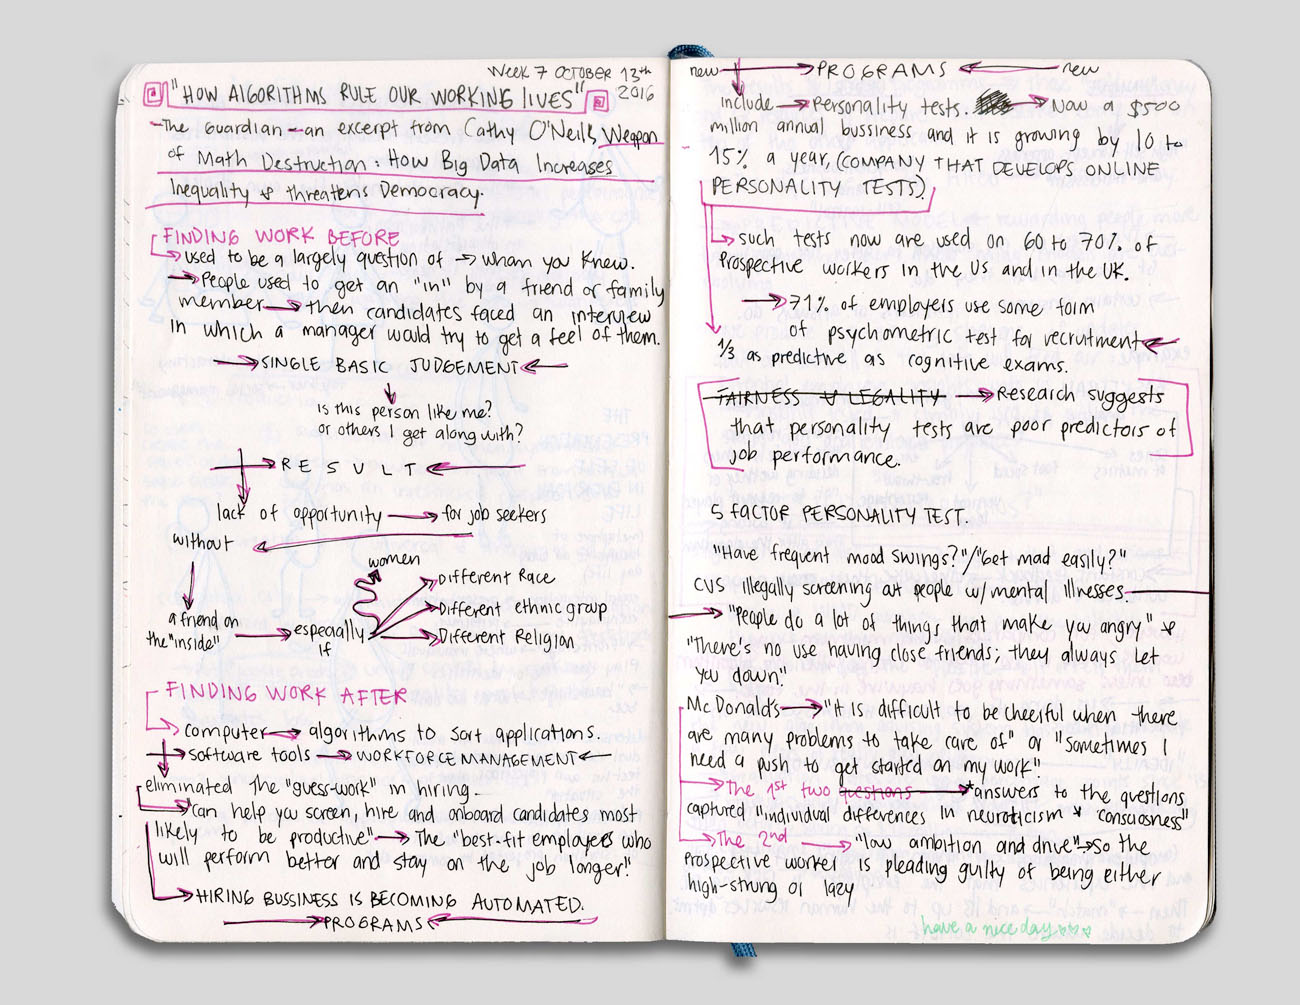 Week 7 OCTOBER 13th
2016
"HOW ALGORITHMS RULE OUR WORKING LIVES"
-The Guardian - an excerpt from Cathy O'Neil's Weapon
of Math Destruction: How Big Data Increases
Inequality & threatens Democracy.
FINDING WORK BEFORE
used to be a largely question of → whom you knew.
→ People used to get an "in" by a friend or family
member → then candidates faced an interview
in which a manager would try to get a feel of them.
→ SINGLE BASIC JUDGEMENT ←
Is this person like me?
or others I get along with?
→ RESULT ←
lack of opportunity → for job seekers
without
women
Different Race
a friend on
the "inside" → especially
if
Different ethnic group
Different Religion
FINDING WORK AFTER
computer → algorithms to sort applications.
→ Software tools → WORKFORCE MANAGEMENT ←
eliminated the "guess-work" in hiring.
"Can help you screen, hire and onboard candidates most
likely to be productive" → The "best-fit employees who
will perform better and stay on the job longer!"
→ HIRING BUSSINESS IS BECOMING AUTOMATED.
→ PROGRAMS ←
new → PROGRAMS ← new
include → Personality tests. → Now a $500
million annual bussiness and it is growing by 10 to
15% a year, (COMPANY THAT DEVELOPS ONLINE
PERSONALITY TESTS)
→ such tests now are used on 60 to 70% of
prospective workers in the US and in the UK.
→ 71% of employers use some form
of psychometric test for recruitment ←
1/3 as predictive as cognitive exams.
FAIRNESS & LEGALITY → Research suggests
that personality tests are poor predictors of
job performance.
5 FACTOR PERSONALITY TEST.
"Have frequent mood swings?"/"Get mad easily?"
CVS illegally screening out people w/ mental illnesses.
→ "People do a lot of things that make you angry" &
"There's no use having close friends; they always let
you down"
McDonald's → "it is difficult to be cheerful when there
are many problems to take care of" or "Sometimes I
need a push to get started on my work"
→ The 1st two questions → *answers to the questions
captured "individual differences in neuroticism & consciousness"
→ The 2nd → "low ambition and drive" → So the
prospective worker is pleading guilty of being either
high-strung or lazy
have a nice day ♡♡♡